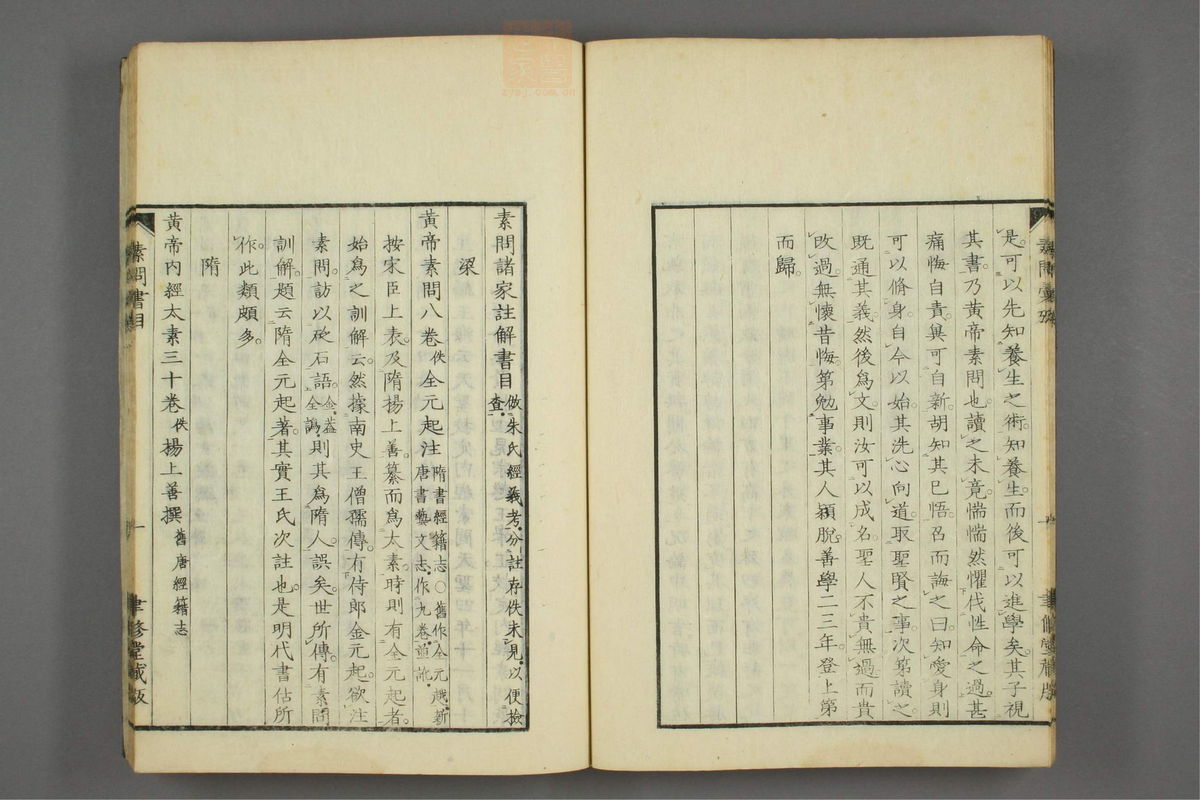 是可以先知養生之術知養生而後可以進學矣其子視
其書乃黃帝素問也讀之未竟惴惴然懼伐性命之過甚
痛悔自責冀可自新胡知其已悟召而誨之曰知愛身則
可以脩身自今以始其洗心向道取聖賢之事次第讀之
既通其義然後爲文則汝可以成名聖人不貴無過而貴
改過無懷昔悔第勉事業其人穎脫善學二三年登上第
而歸
素問諸家註解書目倣朱氏經義考分註存佚未見以便撿
查
梁
黃帝素問八卷佚全元起注隋書經籍志○舊作全元越新
唐書藝文志作九卷並訛
按宋臣上表及隋揚上善纂而爲太素時則有全元起者
始爲之訓解云然據南史王僧孺傳有侍郎金元起欲注
素問訪以砭石語金蓋
全譌則其爲隋人誤矣世所傳有素問
訓解題云隋全元起著其實王氏次註也是明代書估所
作此類頗多
隋
黃帝內經太素三十卷佚揚上善撰舊唐經籍志
素問書目
一
聿修堂藏版